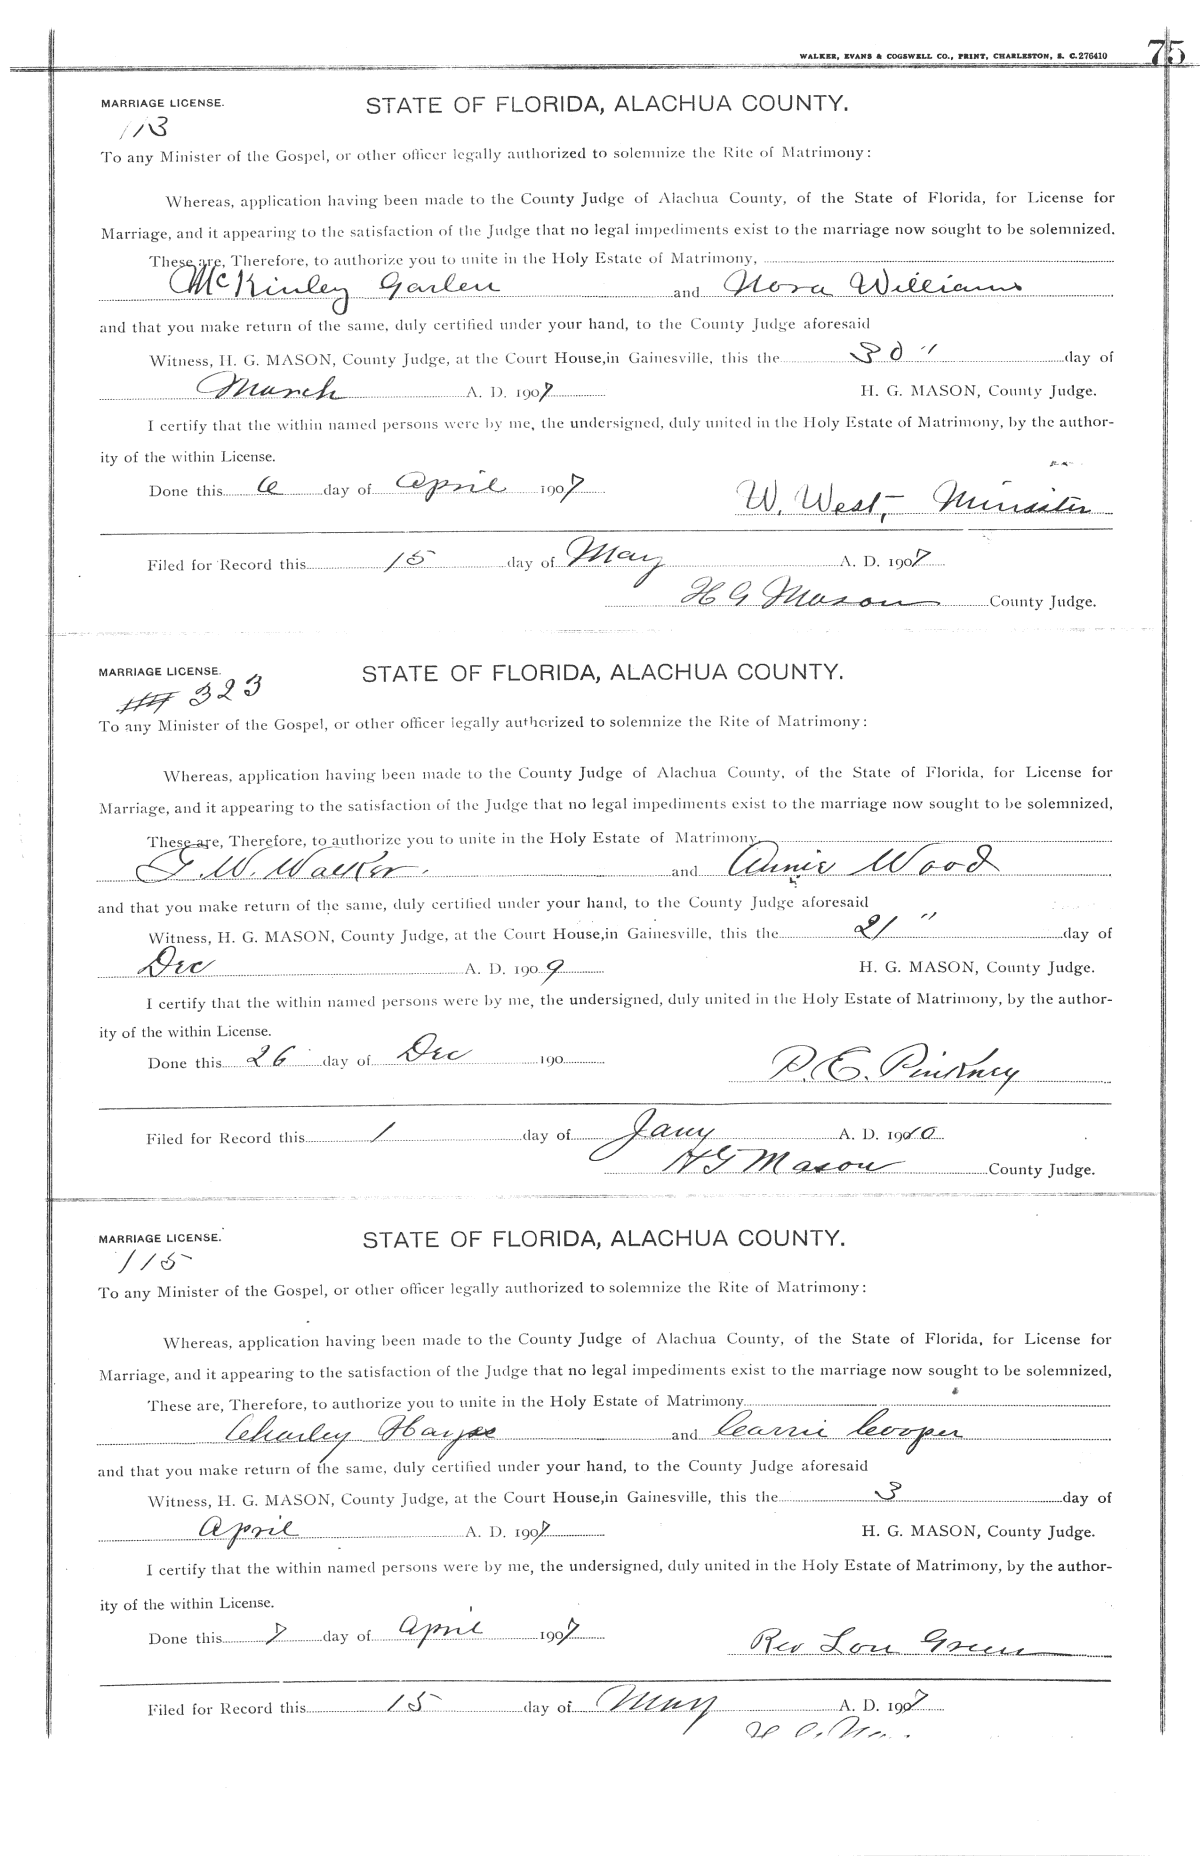 WALKER, EVANS & COGSWELL CO., PRINT, CHARLESTON, S. C. 276410
75
MARRIAGE LICENSE.
STATE OF FLORIDA, ALACHUA COUNTY.
113
To any Minister of the Gospel, or other officer legally authorized to solemnize the Rite of Matrimony:
Whereas, application having been made to the County Judge of Alachua County, of the State of Florida, for License for
Marriage, and it appearing to the satisfaction of the Judge that no legal impediments exist to the marriage now sought to be solemnized.
These are, Therefore, to authorize you to unite in the Holy Estate of Matrimony,
McKinley Garlen and Nora Williams
and that you make return of the same, duly certified under your hand, to the County Judge aforesaid
Witness, H. G. MASON, County Judge, at the Court House, in Gainesville, this the 30" day of
March A. D. 1907 H. G. MASON, County Judge.
I certify that the within named persons were by me, the undersigned, duly united in the Holy Estate of Matrimony, by the author-
ity of the within License.
Done this 6 day of April 1907
W. West, - Minister
Filed for Record this 15 day of May A. D. 1907
H G Mason County Judge.
MARRIAGE LICENSE.
STATE OF FLORIDA, ALACHUA COUNTY.
323
To any Minister of the Gospel, or other officer legally authorized to solemnize the Rite of Matrimony:
Whereas, application having been made to the County Judge of Alachua County, of the State of Florida, for License for
Marriage, and it appearing to the satisfaction of the Judge that no legal impediments exist to the marriage now sought to be solemnized,
These are, Therefore, to authorize you to unite in the Holy Estate of Matrimony
G. W. Walker. and Annie Wood
and that you make return of the same, duly certified under your hand, to the County Judge aforesaid
Witness, H. G. MASON, County Judge, at the Court House, in Gainesville, this the 21" day of
Dec A. D. 1909 H. G. MASON, County Judge.
I certify that the within named persons were by me, the undersigned, duly united in the Holy Estate of Matrimony, by the author-
ity of the within License.
Done this 26 day of Dec 190
P. E. Pinkney
Filed for Record this 1 day of Jany A. D. 1910
H G Mason County Judge.
MARRIAGE LICENSE.
STATE OF FLORIDA, ALACHUA COUNTY.
115
To any Minister of the Gospel, or other officer legally authorized to solemnize the Rite of Matrimony:
Whereas, application having been made to the County Judge of Alachua County, of the State of Florida, for License for
Marriage, and it appearing to the satisfaction of the Judge that no legal impediments exist to the marriage now sought to be solemnized,
These are, Therefore, to authorize you to unite in the Holy Estate of Matrimony
Charley Hayes and Carrie Cooper
and that you make return of the same, duly certified under your hand, to the County Judge aforesaid
Witness, H. G. MASON, County Judge, at the Court House, in Gainesville, this the 3 day of
April A. D. 1907 H. G. MASON, County Judge.
I certify that the within named persons were by me, the undersigned, duly united in the Holy Estate of Matrimony, by the author-
ity of the within License.
Done this 7 day of April 1907
Rev Lou Green
Filed for Record this 15 day of May A. D. 1907